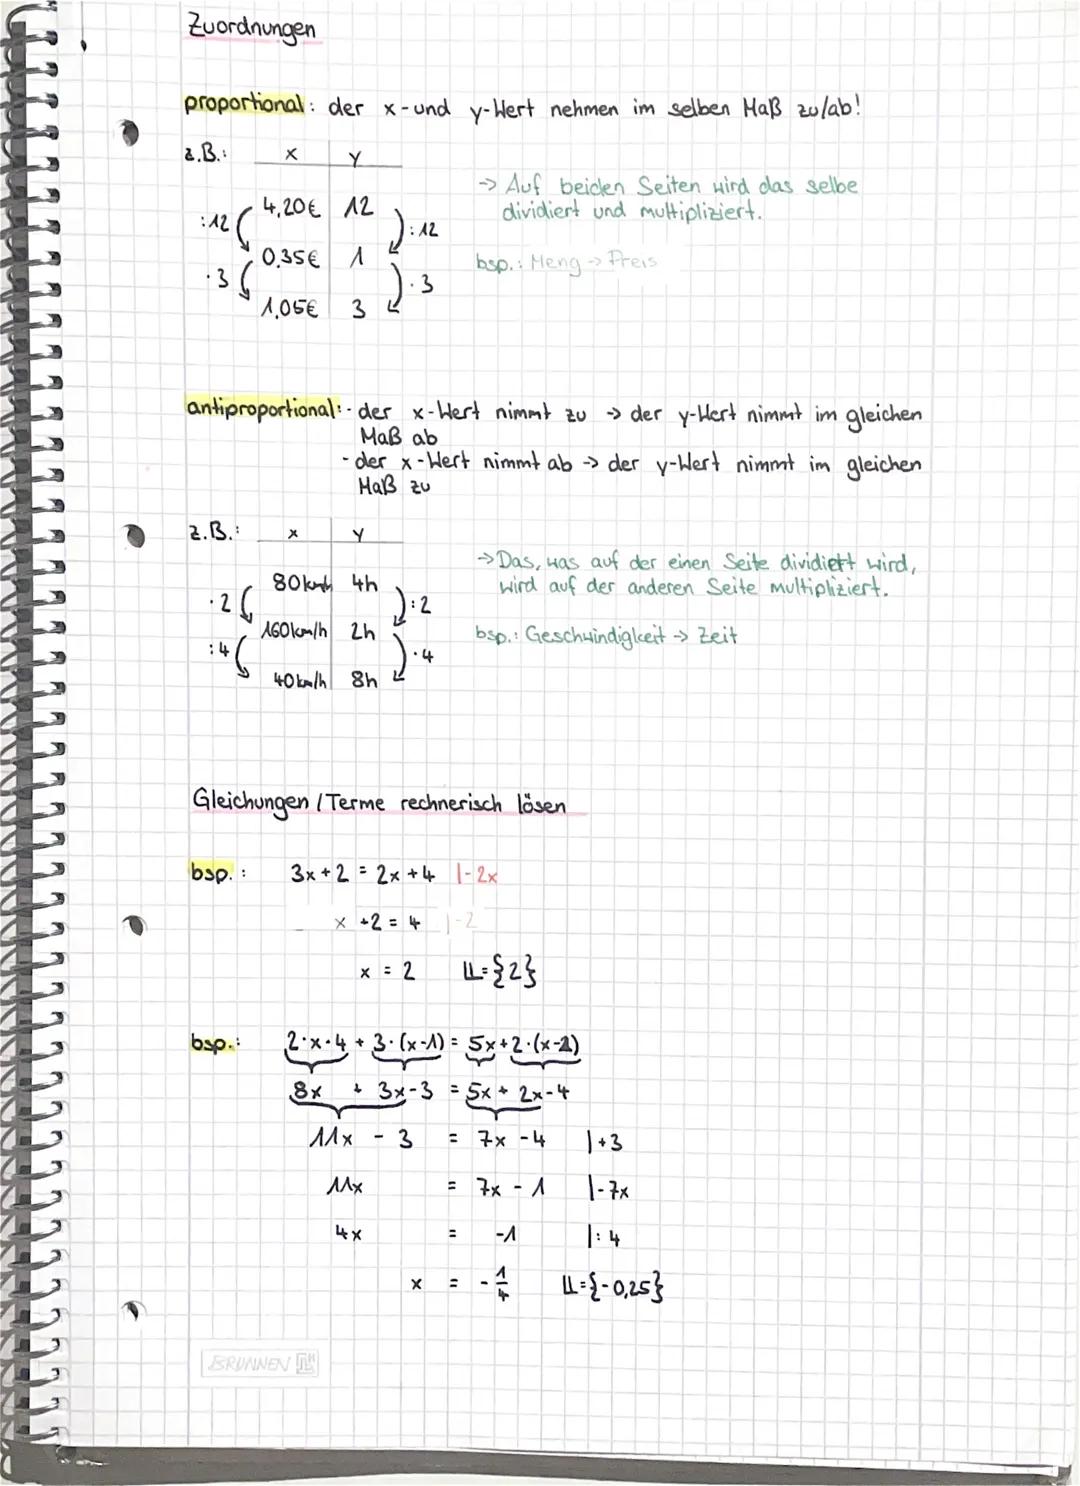 Zuordnungen
proportional: der x-und y-Wert nehmen im selben Maß zu/ab!
z.B.: x y
4,20€ 12
:12 :12
0,35€ 1
·3 ·3
1,05€ 3
-> Auf beiden Seiten wird das selbe
dividiert und multipliziert.
bsp.: Meng -> Preis
antiproportional: - der x-Wert nimmt zu -> der y-Wert nimmt im gleichen
Maß ab
- der x-Wert nimmt ab -> der y-Wert nimmt im gleichen
Maß zu
z.B.: x y
80km/h 4h
·2 :2
160km/h 2h
:4 ·4
40km/h 8h
-> Das, was auf der einen Seite dividiert wird,
wird auf der anderen Seite multipliziert.
bsp.: Geschwindigkeit -> Zeit
Gleichungen / Terme rechnerisch lösen
bsp.: 3x+2 = 2x+4 |-2x
x +2 = 4 |-2
x = 2 𝕃={2}
bsp.: 2·x·4 + 3·(x-1) = 5x+2·(x-2)
8x + 3x-3 = 5x + 2x-4
11x - 3 = 7x -4 |+3
11x = 7x - 1 |-7x
4x = -1 |:4
x = -1/4 𝕃={-0,25}
BRUNNEN